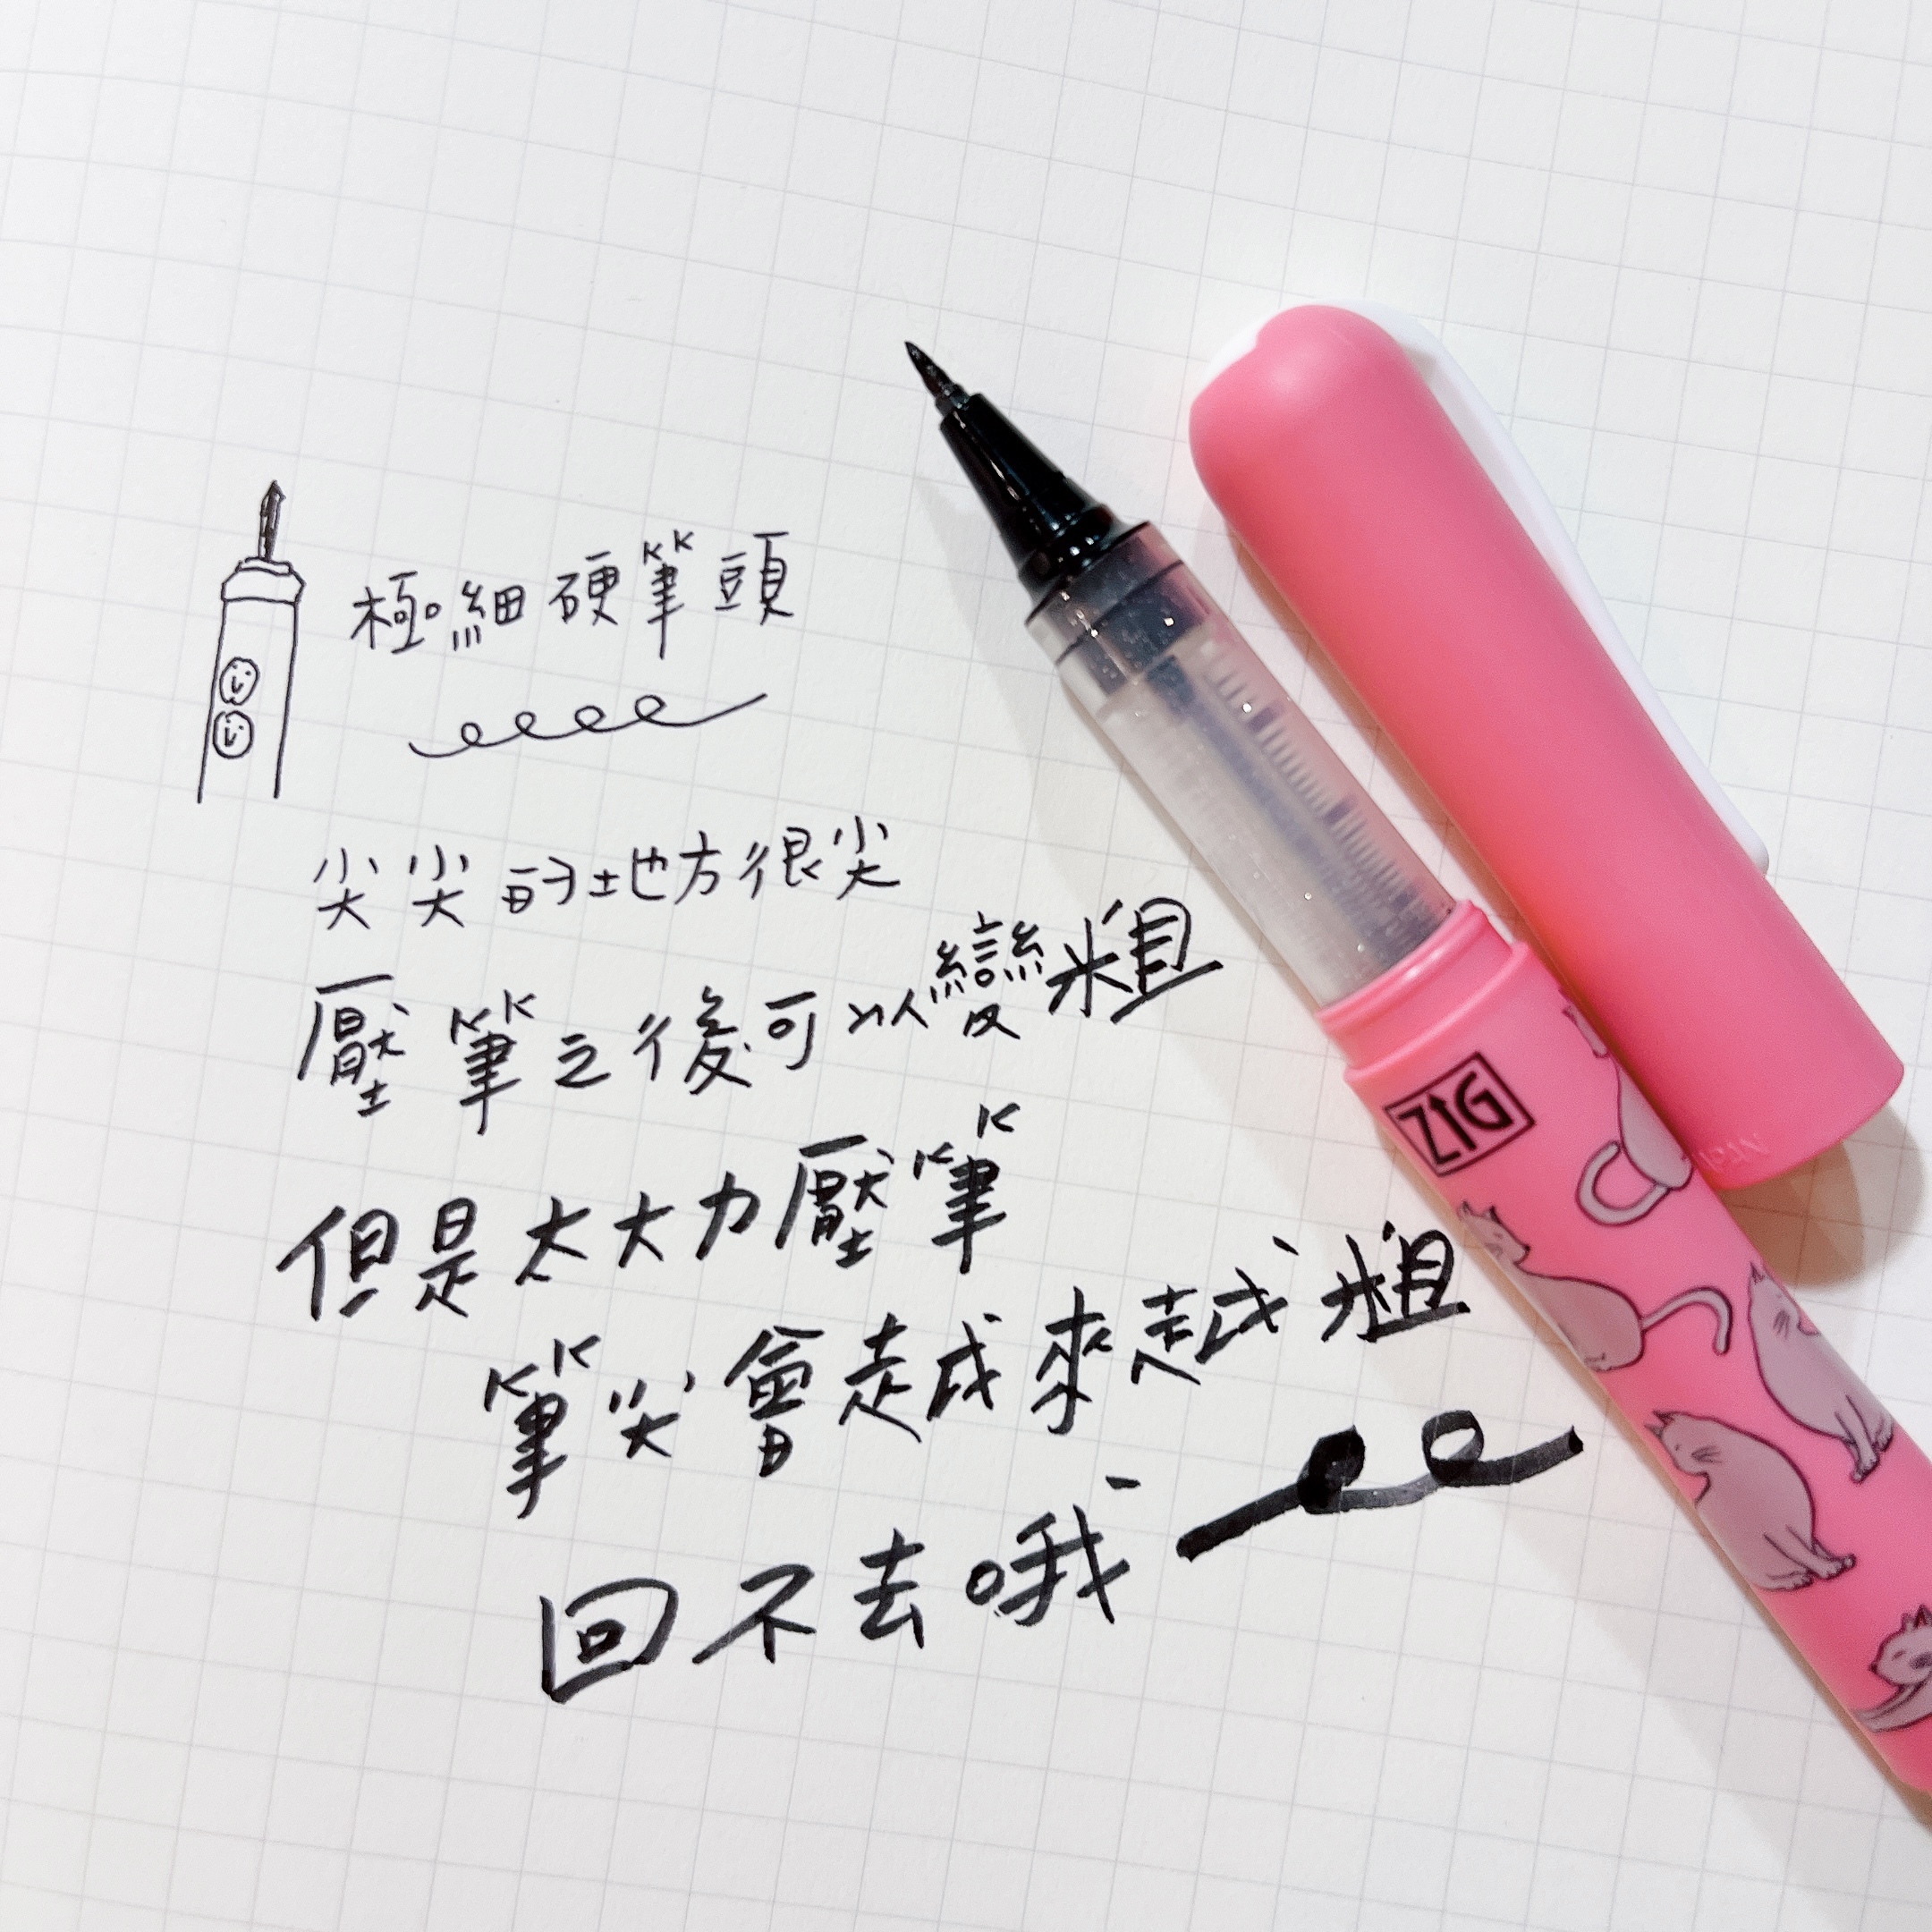 極細硬筆頭
尖尖的地方很尖
壓筆之後可以變粗
但是太大力壓筆
筆尖會越來越粗
回不去哦
ZIG